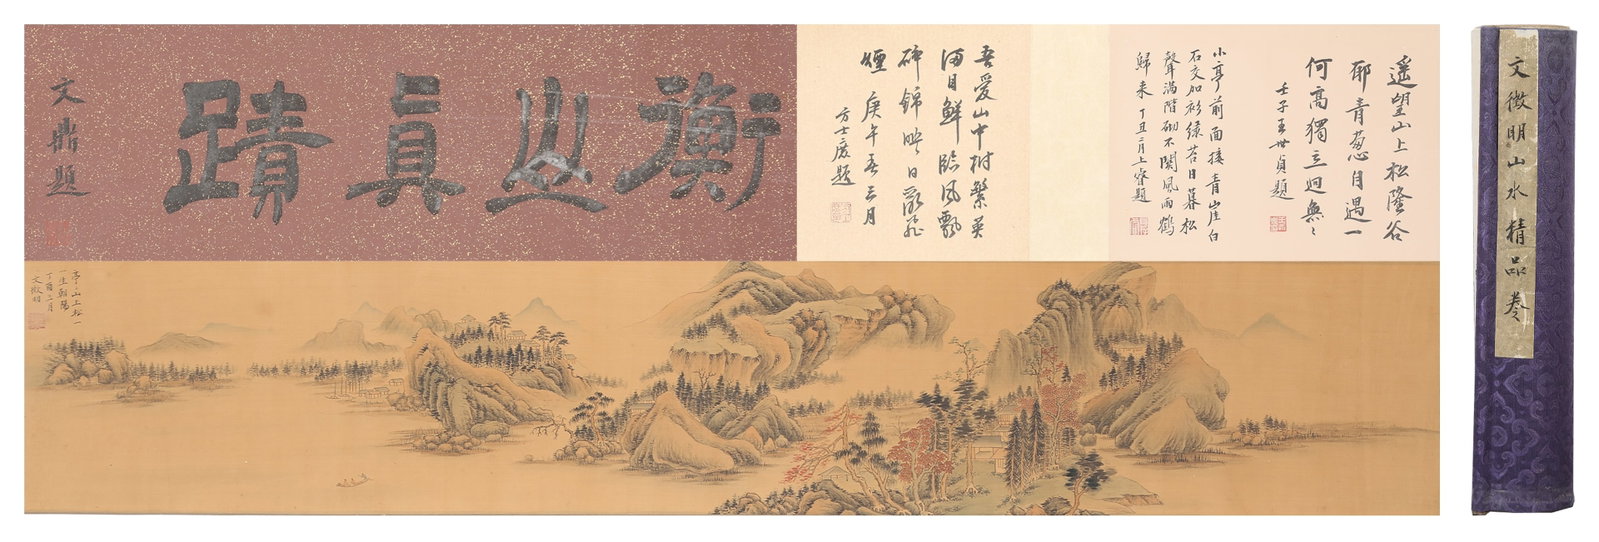 衡山真蹟
文鼎題
吾愛山中樹繁英
滿目鮮臨風飄
碎錦映日
煙 庚午春三月
方士庶題
遙望山上松隆谷
耶青葱自遇一
何高獨立迥無〻
壬子王世貞題
小亭前面接青山崖白
石交加衫綠苔日暮松
聲滿階砌不關風雨鶴
歸來 丁丑二月上睿題
亭〻山上松一
一生朝陽
丁酉三月
文徵明
文徵明山水精品卷